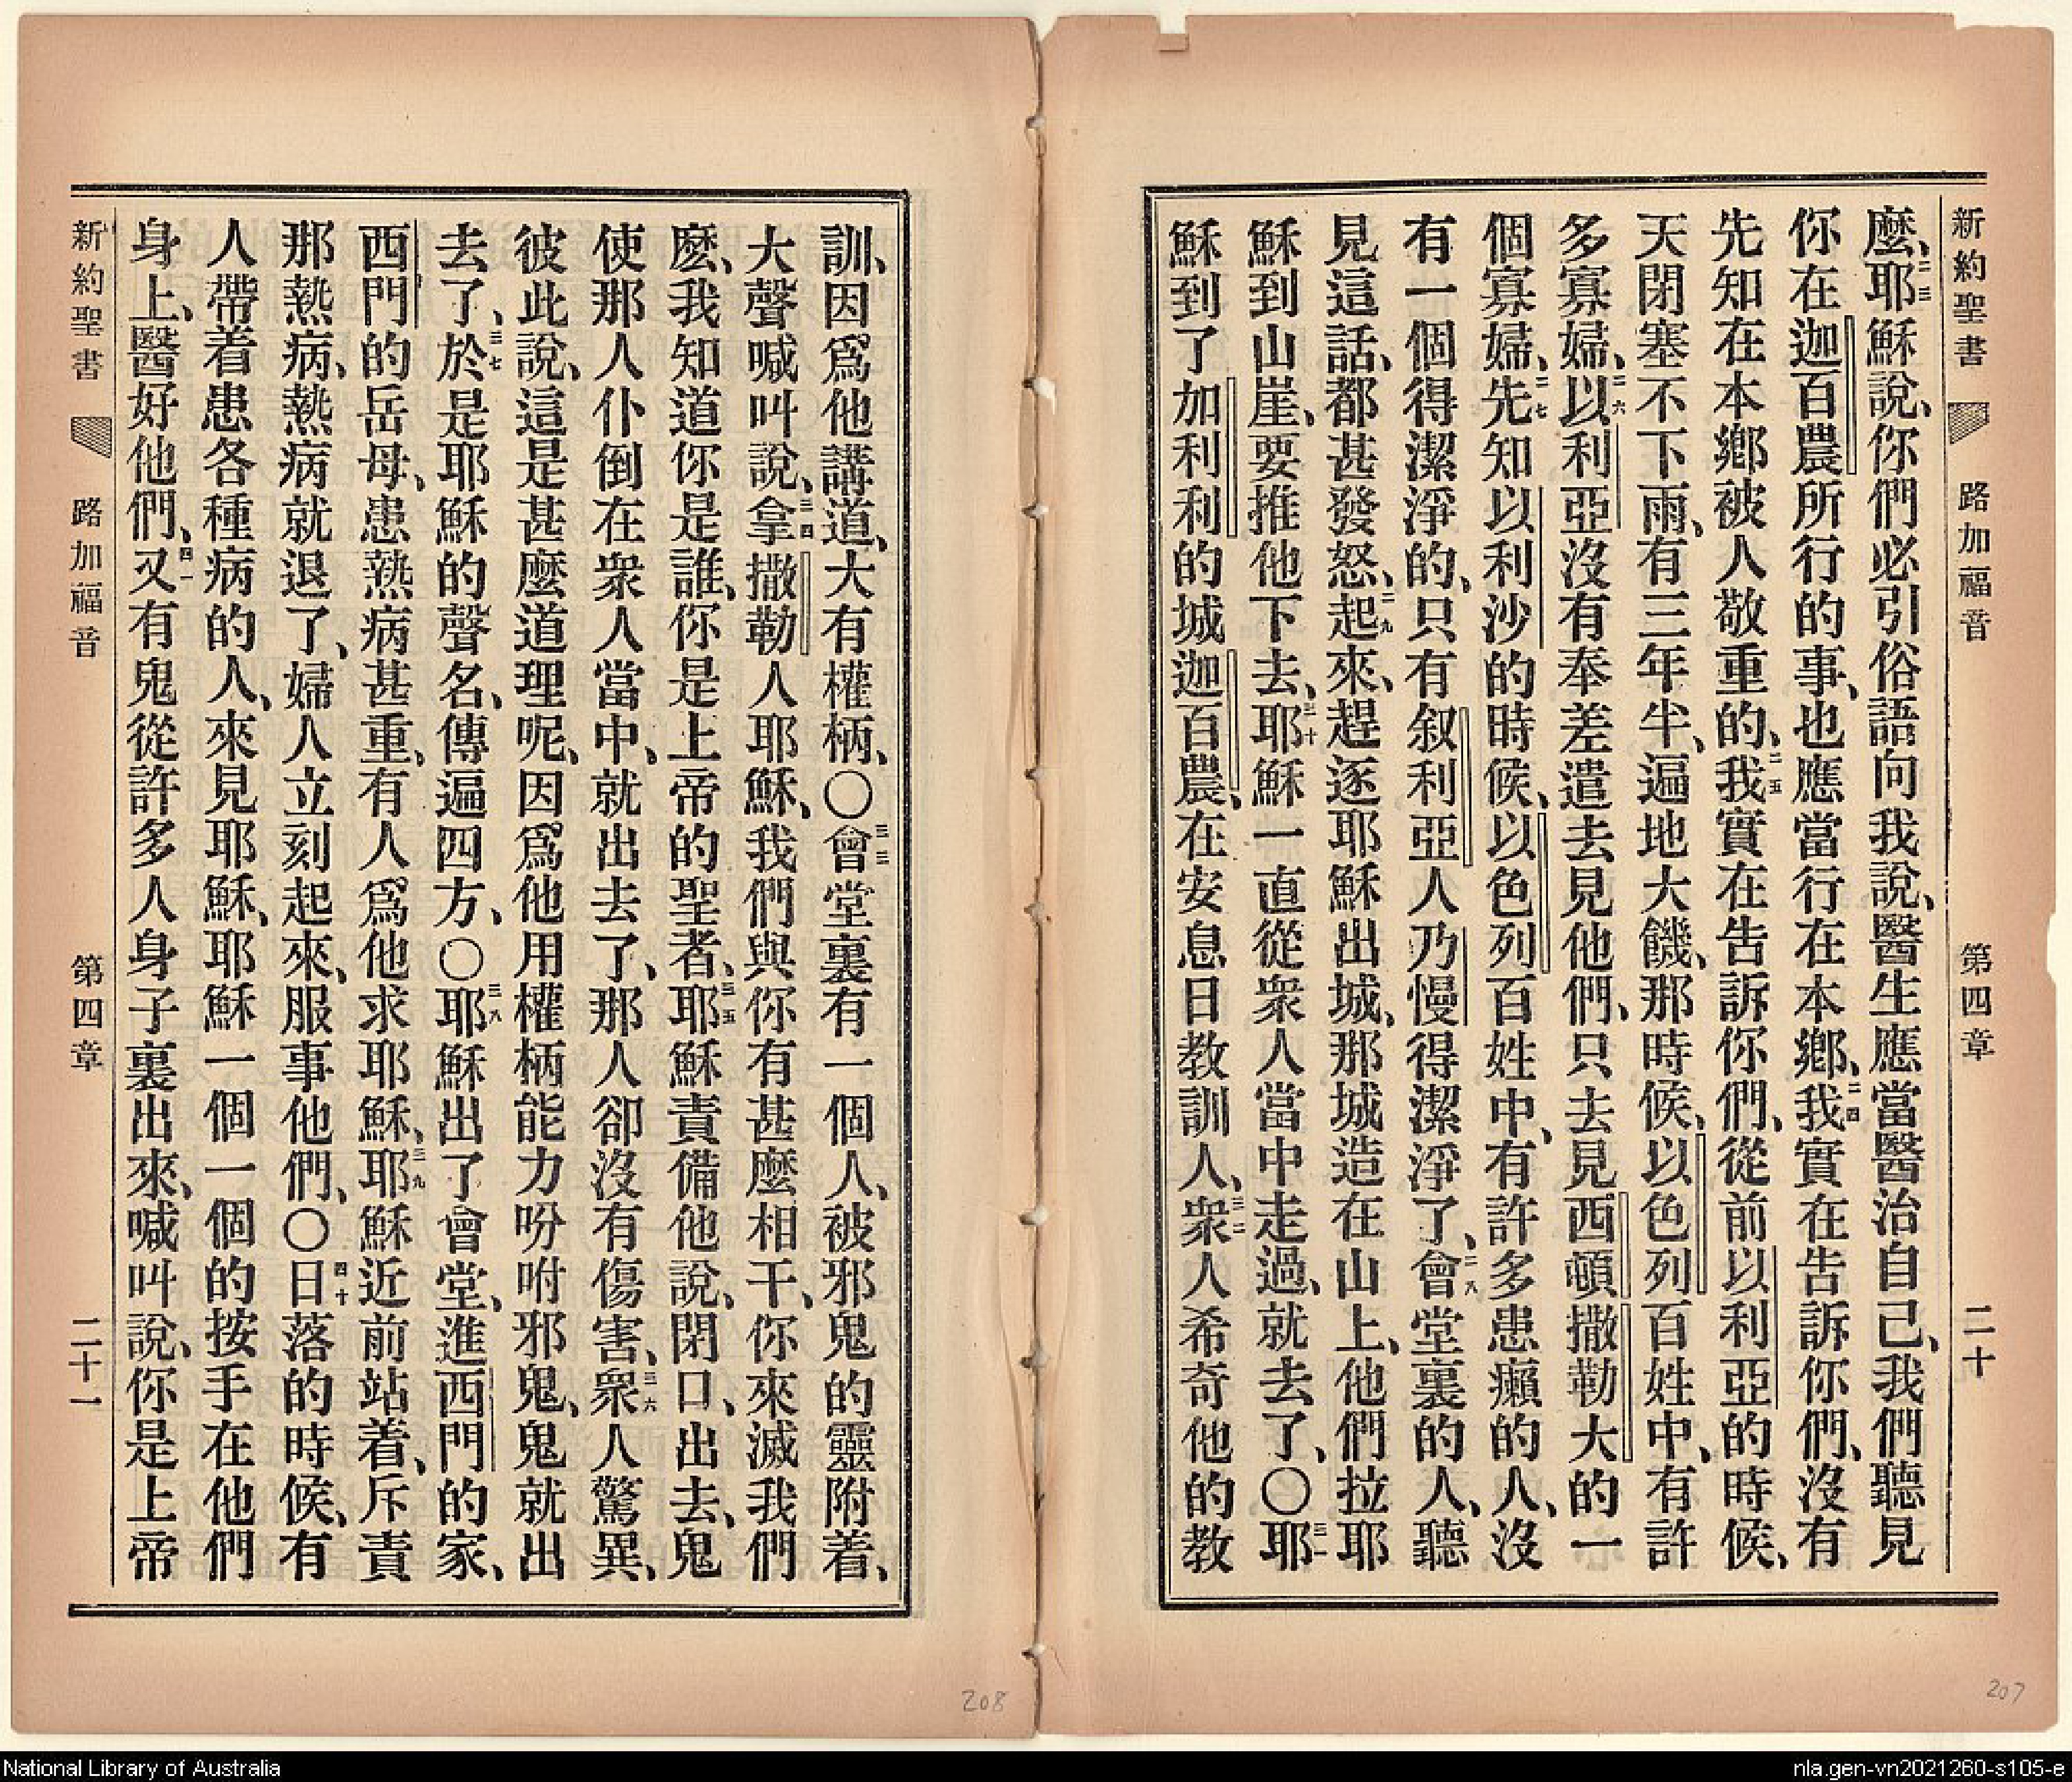 新約聖書 路加福音 第四章 二十
麼、二三耶穌說、你們必引俗語向我說、醫生應當醫治自己、我們聽見
你在迦百農所行的事、也應當行在本鄉、二四我實在告訴你們、沒有
先知在本鄉被人敬重的、二五我實在告訴你們、從前以利亞的時候、
天閉塞不下雨、有三年半、遍地大饑、那時候、以色列百姓中、有許
多寡婦、二六以利亞沒有奉差遣去見他們、只去見西頓撒勒大的一
個寡婦、二七先知以利沙的時候、以色列百姓中、有許多患癩的人、沒
有一個得潔淨的、只有叙利亞人乃慢得潔淨了、二八會堂裏的人、聽
見這話、都甚發怒、二九起來、趕逐耶穌出城、那城造在山上、他們拉耶
穌到山崖、要推他下去、三十耶穌一直從衆人當中走過、就去了、〇三一耶
穌到了加利利的城迦百農、在安息日教訓人、三二衆人希奇他的教
207
訓、因爲他講道、大有權柄、〇三三會堂裏有一個人、被邪鬼的靈附着、
大聲喊叫說、三四拿撒勒人耶穌、我們與你有甚麼相干、你來滅我們
麼、我知道你是誰、你是上帝的聖者、三五耶穌責備他說、閉口、出去、鬼
使那人仆倒在衆人當中、就出去了、那人卻沒有傷害、三六衆人驚異、
彼此說、這是甚麼道理呢、因爲他用權柄能力吩咐邪鬼、鬼就出
去了、三七於是耶穌的聲名、傳遍四方、〇三八耶穌出了會堂、進西門的家、
西門的岳母、患熱病甚重、有人爲他求耶穌、三九耶穌近前站着、斥責
那熱病、熱病就退了、婦人立刻起來、服事他們、〇四十日落的時候、有
人帶着患各種病的人、來見耶穌、耶穌一個一個的按手在他們
身上、醫好他們、四一又有鬼從許多人身子裏出來、喊叫說、你是上帝
新約聖書 路加福音 第四章 二十一
208
National Library of Australia
nla.gen-vn2021260-s105-e